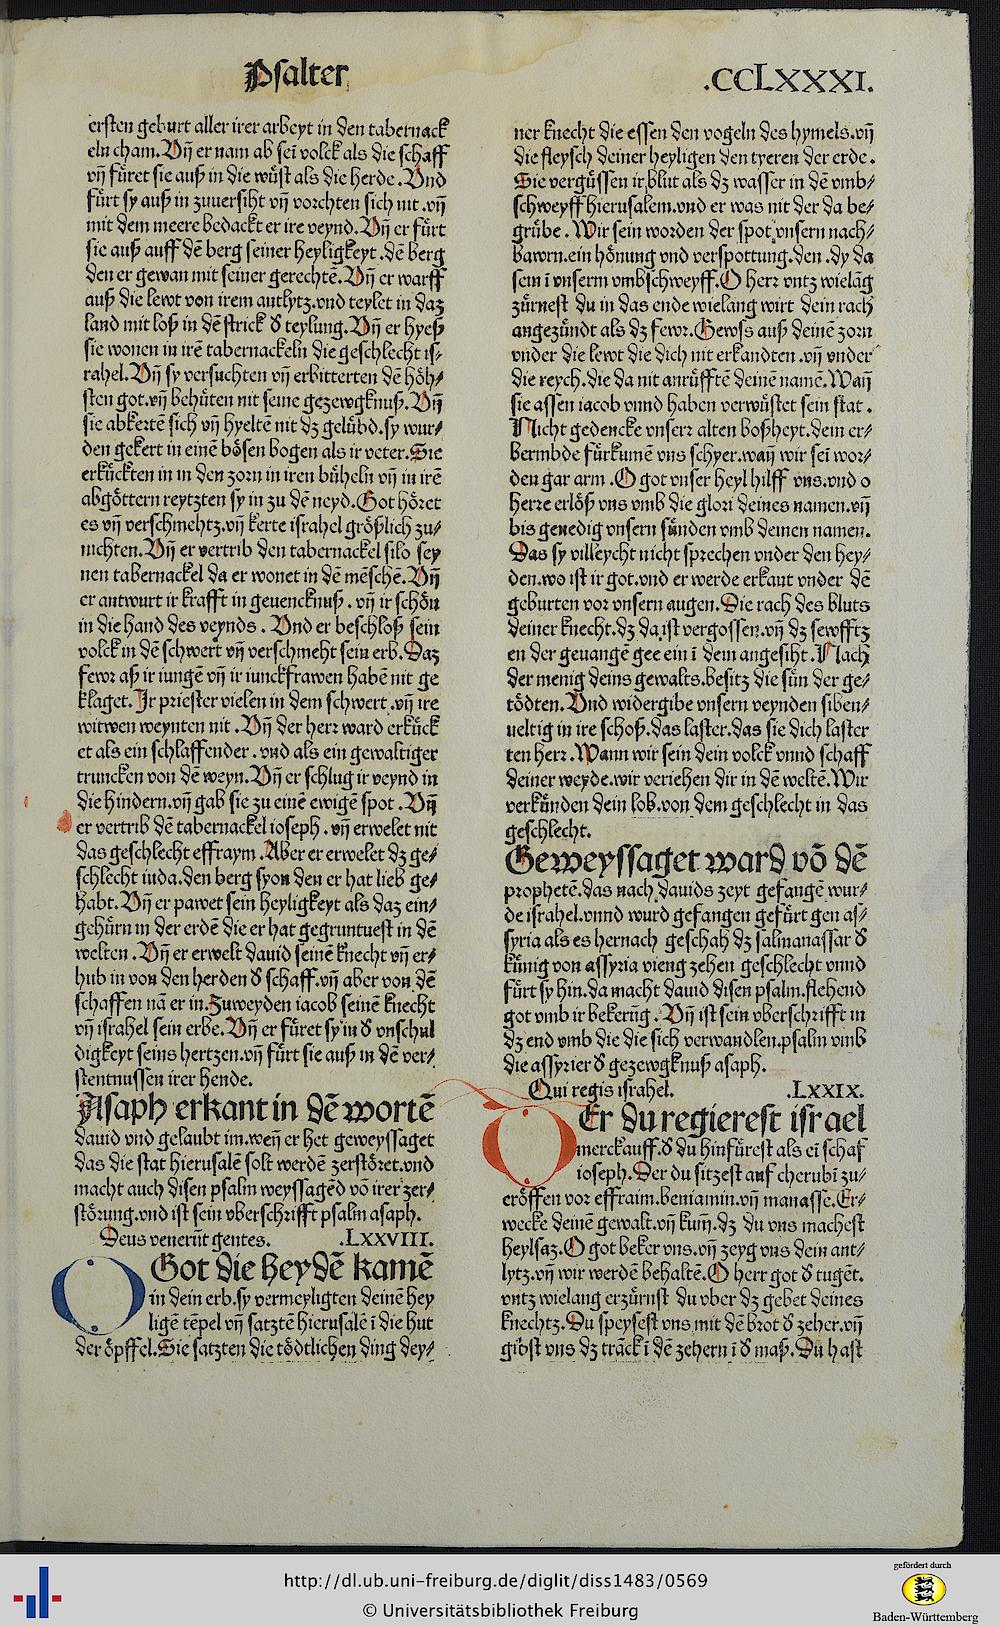 Psalter
.CCLXXXI.
ersten geburt aller irer arbeyt in den tabernack
eln cham. Vñ er nam ab sei volck als die schaff
vñ füret sie auß in die wüst als die herde. Vnd
fürt sy auß in zuuersiht vñ vorchten sich nit. vñ
mit dem meere bedackt er ire veynd. Vñ er fürt
sie auß auff dē berg seiner heyligkeyt. dē berg
den er gewan mit seiner gerechtē. Vñ er warff
auß die lewt von irem antlytz. vnd teylet in daz
land mit loß in dē strick d teylung. Vñ er hyeß
sie wonen in irē tabernackeln die geschlecht is⸗
rahel. Vñ sy versuchten vñ erbitterten dē höh⸗
sten got. vñ behüten nit seine gezewgknuß. Vñ
sie abkertē sich vñ hyeltē nit dz gelübd. sy wur⸗
den gekert in einē bösen bogen als ir veter. Sie
erkückten in in den zorn in iren büheln vñ in irē
abgöttern reytzten sy in zu dē neyd. Got höret
es vñ verschmehtz. vñ kerte israhel größlich zu⸗
nichten. Vñ er vertrib den tabernackel silo sey
nen tabernackel da er wonet in dē mēschē. Vñ
er antwurt ir krafft in geuencknuß. vñ ir schön
in die hand des veynds. Vnd er beschloß sein
volck in dē schwert vñ verschmeht sein erb. Daz
fewr aß ir iungē vñ ir iunckfrawen habē nit ge
klaget. Ir priester vielen in dem schwert. vñ ire
witwen weynten nit. Vñ der herr ward erkück
et als ein schlaffender. vnd als ein gewaltiger
truncken von dē weyn. Vñ er schlug ir veynd in
die hindern. vñ gab sie zu einē ewigē spot. Vñ
er vertrib dē tabernackel ioseph. vñ erwelet nit
das geschlecht effraym. Aber er erwelet dz ge⸗
schlecht iuda. den berg syon den er hat lieb ge⸗
habt. Vñ er pawet sein heyligkeyt als daz ein⸗
gehürn in der erdē die er hat gegruntuest in dē
welten. Vñ er erwelt dauid seinē knecht vñ er⸗
hub in von den herden d schaff. vñ aber von dē
schaffen nā er in. Zuweyden iacob seinē knecht
vñ israhel sein erbe. Vñ er füret sy in d vnschul
digkeyt seins hertzen. vñ fürt sie auß in dē ver⸗
stentnussen irer hende.
Asaph erkant in dē wortē
dauid vnd gelaubt im. weñ er het geweyssaget
das die stat hierusalē solt werdē zerstöret. vnd
macht auch disen psalm weyssagēd vō irer zer⸗
störung. vnd ist sein vberschrifft psalm asaph.
Deus venerūt gentes. .LXXVIII.
O Got die heydē kamē
in dein erb. sy vermeyligten deinē hey
ligē tēpel vñ satztē hierusalē ī die hut
der öpffel. Sie satzten die tödtlichen ding dey⸗
ner knecht die essen den vogeln des hymels. vñ
die fleysch deiner heyligen den tyeren der erde.
Sie vergüssen ir blut als dz wasser in dē vmb⸗
schweyff hierusalem. vnd er was nit der da be⸗
grübe. Wir sein worden der spot vnsern nach⸗
bawrn. ein hönung vnd verspottung. den. dy da
sein ī vnserm vmbschweyff. O herr vntz wielāg
zürnest du in das ende wielang wirt dein rach
angezündt als dz fewr. Gewss auß deinē zorn
vnder die lewt die dich nit erkandten. vñ vnder
die reych. die da nit anrüfftē deinē namē. Wañ
sie assen iacob vnnd haben verwüstet sein stat.
Nicht gedencke vnserr alten boßheyt. dein er⸗
bermbde fürkumē vns schyer. wañ wir sei wor⸗
den gar arm. O got vnser heyl hilff vns. vnd o
herre erlöß vns vmb die glori deines namen. vñ
bis genedig vnsern sünden vmb deinen namen.
Das sy villeycht nicht sprechen vnder den hey⸗
den. wo ist ir got. vnd er werde erkant vnder dē
geburten vor vnsern augen. Die rach des bluts
deiner knecht. dz da ist vergossen. vñ dz sewfftz
en der geuangē gee ein ī dein angesiht. Nach
der menig deins gewalts. besitz die sün der ge⸗
tödten. Vnd widergibe vnsern veynden siben⸗
ueltig in ire schoß. das laster. das sie dich laster
ten herr. Wann wir sein dein volck vnnd schaff
deiner weyde. wir veriehen dir in dē weltē. Wir
verkünden dein lob. von dem geschlecht in das
geschlecht.
Geweyssaget ward vō dē
prophetē. das nach dauids zeyt gefangē wur⸗
de israhel. vnnd wurd gefangen gefürt gen as⸗
syria als es hernach geschah dz salmanassar d
künig von assyria vieng zehen geschlecht vnnd
fürt sy hin. da macht dauid disen psalm. flehend
got vmb ir bekerūg. Vñ ist sein vberschrifft in
dz end vmb die die sich verwandlen. psalm vmb
die assyrier d gezewgknuß asaph.
Qui regis israhel. .LXXIX.
Er du regierest israel
merckauff. d du hinfürest als ei schaf
ioseph. Der du sitzest auf cherubī zu⸗
eröffen vor effraim. beniamin. vñ manasse. Er⸗
wecke deinē gewalt. vñ kum. dz du vns machest
heylsaz. O got beker vns. vñ zeyg vns dein ant⸗
lytz. vñ wir werdē behaltē. O herr got d tugēt.
vntz wielang erzürnst du vber dz gebet deines
knechtz. Du speysest vns mit dē brot d zeher. vñ
gibst vns dz trāck ī dē zehern ī d maß. Du hast
http://dl.ub.uni-freiburg.de/diglit/diss1483/0569
© Universitätsbibliothek Freiburg
gefördert durch
Baden-Württemberg